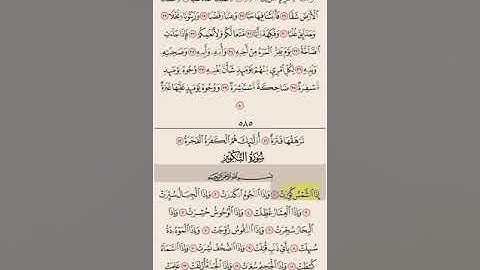 ٱلْأَرْضَ شَقًّا ٢٦ فَأَنۢبَتْنَا فِيهَا حَبًّا ٢٧ وَعِنَبًا وَقَضْبًا ٢٨ وَزَيْتُونًا وَنَخْلًا ٢٩
وَحَدَآئِقَ غُلْبًا ٣٠ وَفَٰكِهَةً وَأَبًّا ٣١ مَّتَٰعًا لَّكُمْ وَلِأَنْعَٰمِكُمْ ٣٢ فَإِذَا جَآءَتِ
ٱلصَّآخَّةُ ٣٣ يَوْمَ يَفِرُّ ٱلْمَرْءُ مِنْ أَخِيهِ ٣٤ وَأُمِّهِۦ وَأَبِيهِ ٣٥ وَصَٰحِبَتِهِۦ
وَبَنِيهِ ٣٦ لِكُلِّ ٱمْرِئٍ مِّنْهُمْ يَوْمَئِذٍ شَأْنٌ يُغْنِيهِ ٣٧ وُجُوهٌ يَوْمَئِذٍ
مُّسْفِرَةٌ ٣٨ ضَاحِكَةٌ مُّسْتَبْشِرَةٌ ٣٩ وَوُجُوهٌ يَوْمَئِذٍ عَلَيْهَا غَبَرَةٌ
٤٠
٥٨٥
تَرْهَقُهَا قَتَرَةٌ ٤١ أُو۟لَٰٓئِكَ هُمُ ٱلْكَفَرَةُ ٱلْفَجَرَةُ ٤٢
سُورَةُ التَّكْوِيرِ
بِسْمِ ٱللَّهِ ٱلرَّحْمَٰنِ ٱلرَّحِيمِ
إِذَا ٱلشَّمْسُ كُوِّرَتْ ١ وَإِذَا ٱلنُّجُومُ ٱنكَدَرَتْ ٢ وَإِذَا ٱلْجِبَالُ سُيِّرَتْ
٣ وَإِذَا ٱلْعِشَارُ عُطِّلَتْ ٤ وَإِذَا ٱلْوُحُوشُ حُشِرَتْ ٥ وَإِذَا
ٱلْبِحَارُ سُجِّرَتْ ٦ وَإِذَا ٱلنُّفُوسُ زُوِّجَتْ ٧ وَإِذَا ٱلْمَوْءُۥدَةُ
سُئِلَتْ ٨ بِأَىِّ ذَنۢبٍ قُتِلَتْ ٩ وَإِذَا ٱلصُّحُفُ نُشِرَتْ ١٠ وَإِذَا ٱلسَّمَآءُ
كُشِطَتْ ١١ وَإِذَا ٱلْجَحِيمُ سُعِّرَتْ ١٢ وَإِذَا ٱلْجَنَّةُ أُزْلِفَتْ ١٣ عَلِمَتْ